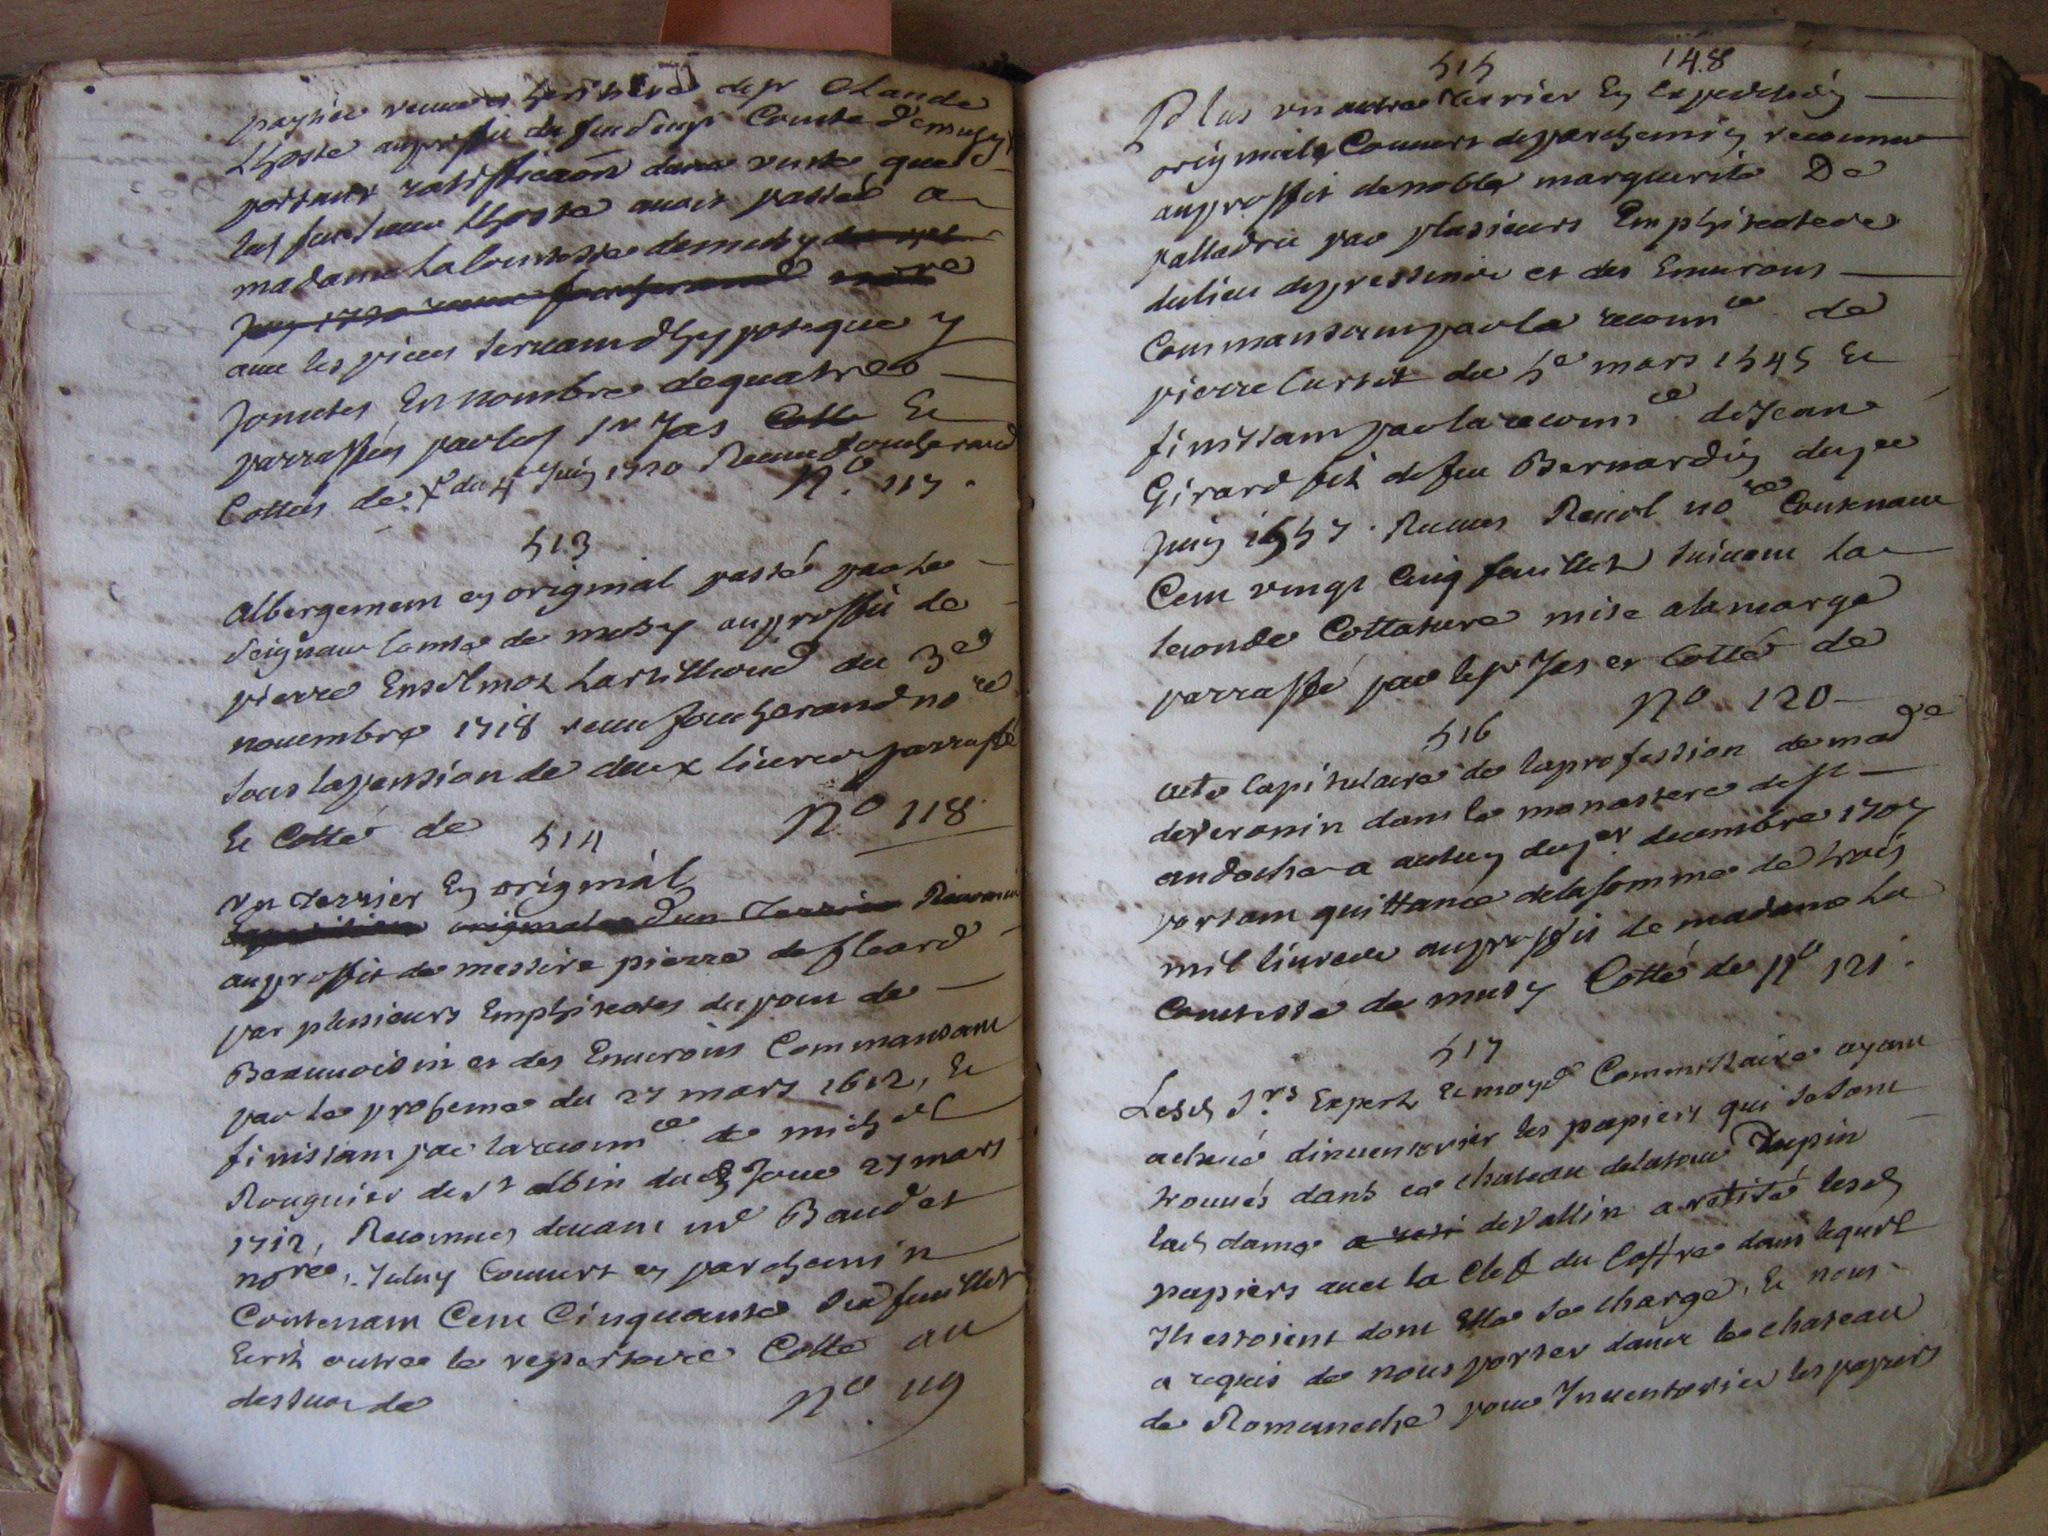 veuve et heritiere de sr Claude
Lhoste au proffit du feu seigr Comte de musy
portant ratiffication dune vente que
led feu sieur Lhoste avoit passée a
madame La Comtesse de musy
Juin 1720
avec les pieces servant dhypoteque y
Jointes En nombre de quatre
parraffées par led sr Jas Cotte Et
Cottés de du 4e Juin 1720 Receu foucherand
No. 117.
513
Albergement en original passé par le
seigneur Comte de musy au proffit de
pierre Enselmoz Lartilloud du 3e
novembre 1718 receu foucherand nore
sous la pension de deux livres parraffé
Et Cotté de No 118
514
Un terrier En original
original dun Terrier Reconnu
au proffit de messire pierre de fleard
par plusieurs Emphiteotes du pont de
Beauvoisin et des Environs Commansant
par le proheme du 27 mars 1612, Et
finissant par la reconnce de michel
Rouguier de St albin dud Jour 27 mars
1712, Reconnues devant me Baudet
nore, Iceluy Couvert en parchemin
Contenant Cent Cinquante six feuillets
Ecrits outre le repertoire Cotté au
dessus de No. 119
515 148
Plus un autre terrier En Expedition
originale Couvert de parchemin reconnu
au proffit de noble marguerite De
palladru par plusieurs Emphiteotes
du lieu de pressins et des Environs
Commansant par la reconnce de
pierre Cursit du 5e mars 1545 Et
finissant par la reconnce de Jean
Girard fils de feu Bernardin du 9e
Juin 1557. Receues Reviol nore Contenant
Cent vingt Cinq feuillets suivant la
seconde Cottature mise a la marge
parraffé par le sr Jas et Cotté de
No 120
516
acte Capitulaire de la profession de made
de veronin dans le monastere de St
andoche a autun du 1er decembre 1707
portant quittance de la somme de trois
mil livres au proffit de madame La
Comtesse de musy Cotté de No 121.
517
Lesd Srs Expert Et moyd Commissaire ayant
achevé dinventorier les papiers qui se sont
trouvés dans ce chateau de la tour Dupin
lad dame a reti de Vallin a retiré lesd
papiers avec la Clef du Coffre dans lequel
Ils estoient dont Elle se charge, Et nous
a requis de nous porter dans le chateau
de Romaneche pour Inventorier les papiers